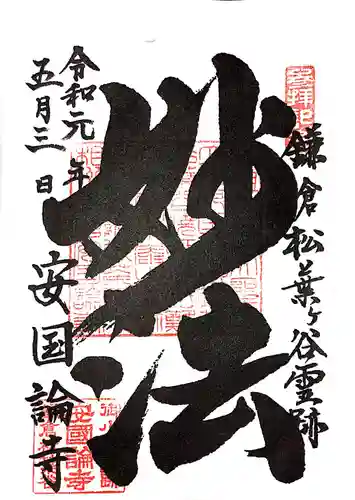 参拝記
鎌倉松葉ヶ谷霊跡
妙法
令和元年
五月三日
安国論寺
安國論寺